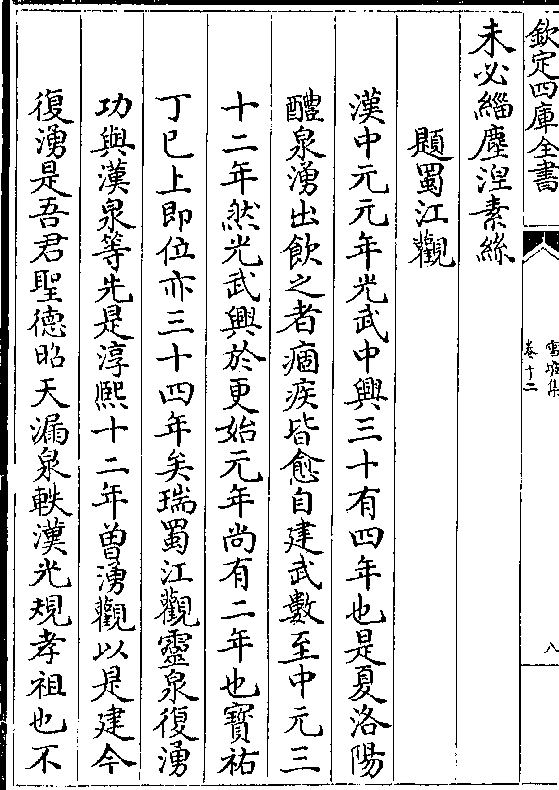 欽定四庫全書
雪坡集
卷十二
八
未必緇塵涅素絲
題蜀江觀
漢中元元年光武中興三十有四年也是夏洛陽
醴泉湧出飲之者痼疾皆愈自建武數至中元三
十二年然光武興於更始元年尚有二年也寳祐
丁巳上即位亦三十四年矣瑞蜀江觀靈泉復湧
功與漢泉等先是淳熙十二年曽湧觀以是建今
復湧是吾君聖德昭天漏泉軼漢光規孝祖也不